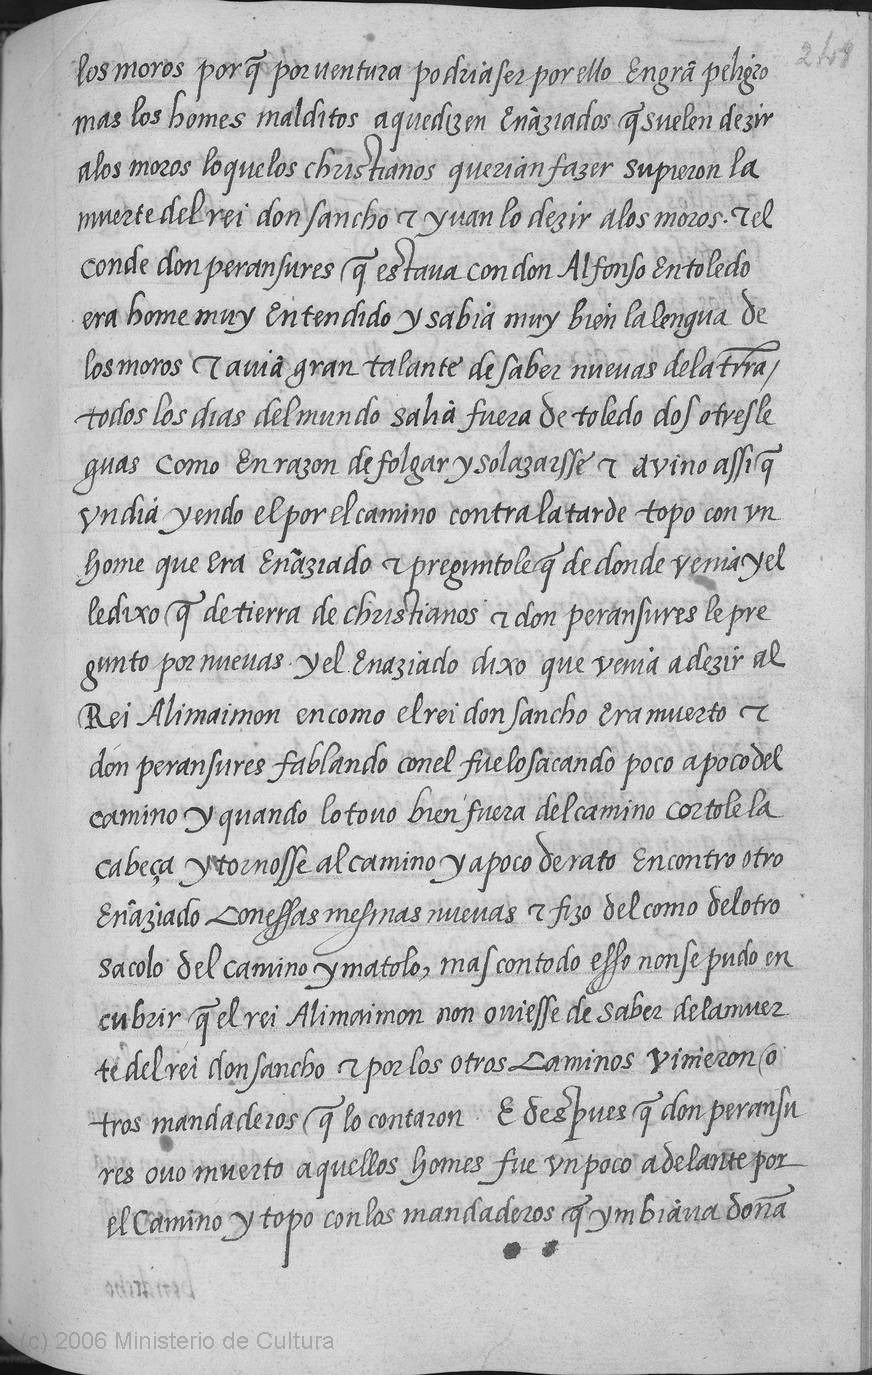 los moros porq̃ por uentura podria ser por ello Engrã peligro
mas los homes malditos aquedizen Enãziados q̃ suelen dezir
alos moros loquelos christianos querian fazer supieron la
muerte del rei don sancho ⁊ yuan lo dezir alos moros. ⁊ el
conde don peransures q̃ estaua con don Alfonso Entoledo
era home muy Entendido y sabia muy bien la lengua de
los moros ⁊ auiã gran talante de saber nueuas dela trr̃a/
todos los dias del mundo salia fuera de toledo dos o tres le
guas como En razon de folgar y solazarsse ⁊ avino assi q̃
vn dia yendo el por el camino contra la tarde topo con vn
home que Era Enãziado ⁊ preguntole q̃ de donde venia y el
le dixo q̃ de tierra de christianos ⁊ don peransures le pre
gunto por nueuas. y el Enaziado dixo que venia a dezir al
Rei Alimaimon en como el rei don sancho Era muerto ⁊
don peransures fablando conel fuelo sacando poco apoco del
camino y quando lo touo bien fuera del camino cortole la
cabeça y tornosse al camino y apoco de rato Encontro otro
Enãziado Conessas mesmas nueuas ⁊ fizo del como del otro
sacolo del camino y matolo, mas con todo esso non se pudo en
cubrir q̃ el rei Alimaimon non ouiesse de saber dela muer
te del rei don sancho ⁊ por los otros Caminos vinieron o
tros mandaderos q̃ lo contaron E despues q̃ don peransu
res ouo muerto aquellos homes fue vn poco adelante por
el Camino y topo con los mandaderos q̃ ymbiaua doña
(c) 2006 Ministerio de Cultura